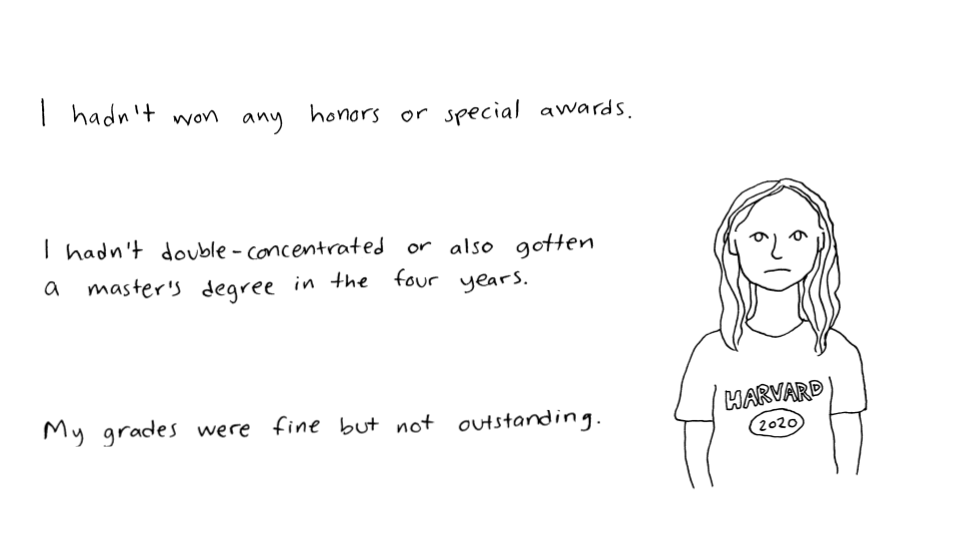 I hadn't won any honors or special awards.
I hadn't double-concentrated or also gotten
a master's degree in the four years.
My grades were fine but not outstanding.
HARVARD
2020